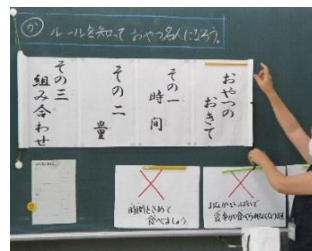 か ルールを知って おやつ名人になろう。
おやつの
おきて
その一
時間
その二
量
その三
組み合わせ
時間をきめて
食べましょう